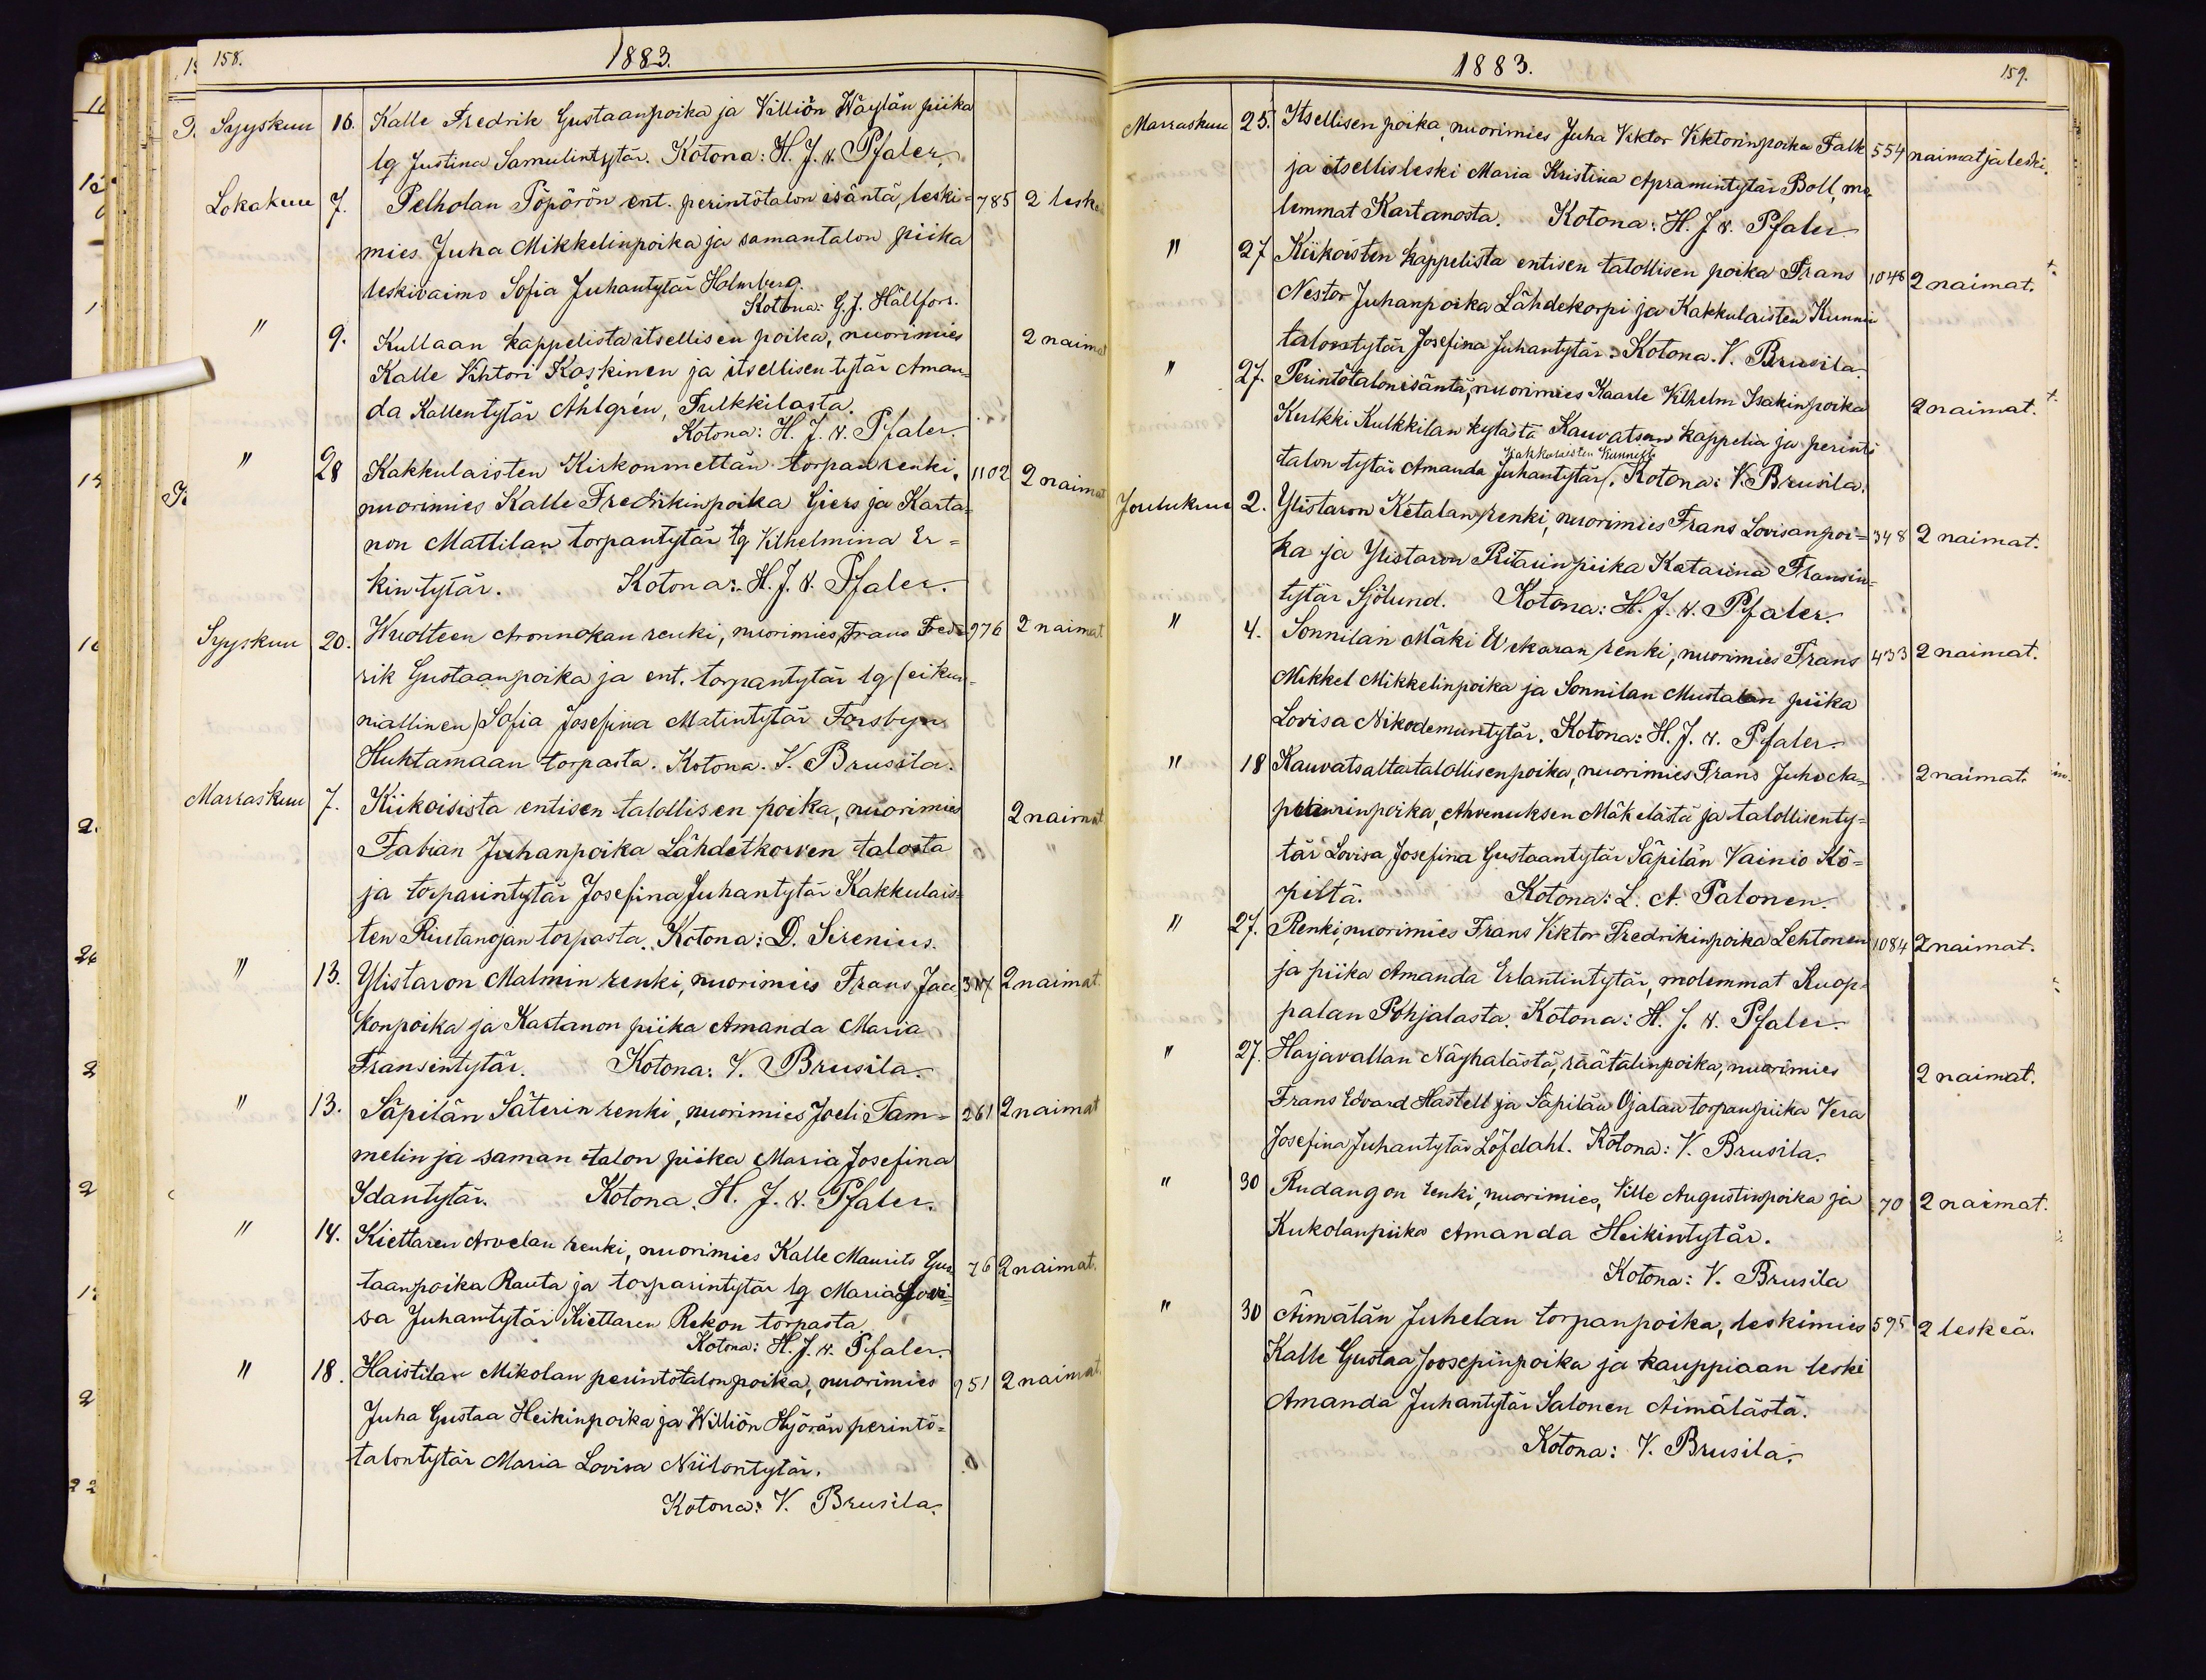 158.
1883.
Syyskuu 16. Kalle Fredrik Gustaanpoika ja Villiön Wäylän piika
lg Justina Samulintytär. Kotona: H. J. v. Pfaler.
Lokakuu 7. Pelholan Pöpörön ent. perintötalon isäntä, leski= 785 2 leske
mies Juha Mikkelinpoika ja samantalon piika
leskivaimo Sofia Juhantytär Holmberg.
Kotona: G. J. Hällfors.
" 9. Kullaan kappelista itsellisen poika, nuorimies 2 naimat
Kalle Vihtori Koskinen ja itsellisen tytär Aman=
da Kallentytär Ahlgrén, Tulkkilasta.
Kotona: H. J. v. Pfaler.
" 28 Kakkulaisten Kirkonmettän torpan renki, 1102 2 naimat
nuorimies Kalle Fredrikinpoika Giers ja Karta=
non Mattilan torpantytär lg Vilhelmina Er=
kintytär. Kotona: H. J. v. Pfaler.
Syyskuu 20. Wuolteen Aronnokan renki, nuorimies, Frans Fred= 976 2 naimat.
rik Gustaanpoika ja ent. torpantytär lg (ei kun=
niallinen) Sofia Josefina Matintytär Forsbyn
Huhtamaan torpasta. Kotona. V. Brusila.
Marraskuu 7. Kiikoisista entisen talollisen poika, nuorimies 2 naimat
Fabian Juhanpoika Lähdetkorven talosta
ja torparintytär Josefina Juhantytär Kakkulais=
ten Riutanojan torpasta. Kotona: D. Sirenius.
" 13. Ylistaron Malmin renki, nuorimies Frans Jaa 2 naimat.
konpoika ja Kartanon piika Amanda Maria
Fransintytär. Kotona: V. Brusila.
" 13. Säpilän Säterin renki, nuorimies Joeli Tam= 261 2 naimat
melin ja saman talon piika Maria Josefina
Idantytär. Kotona. H. J. v. Pfaler.
" 14. Kiettaren Arvelan renki, nuorimies Kalle Maurits Gus 76 2 naimat.
taanpoika Rauta ja torparintytär lg Maria Lovi=
sa Juhantytär Kiettaren Rekon torpasta
Kotona: H. J. v. Pfaler.
" 18. Haistilan Mikolan perintötalonpoika, nuorimies 951 2 naimat.
Juha Gustaa Heikinpoika ja Williön Hyörän perintö=
talontytär Maria Lovisa Niilontytär.
Kotona: V. Brusila.
1883.
159.
Marraskuu 25. Itsellisen poika, nuorimies Juha Viktor Viktorinpoika Falk 554 naimat ja leski.
ja itsellisleski Maria Kristina Apramintytär Boll, mo
lemmat Kartanosta. Kotona: H. J. v. Pfaler
" 27 Kiikoisten kappelista entisen talollisen poika Frans 1048 2 naimat.
Nestor Juhanpoika Lähdekorpi ja Kakkulaisten Kunnin
talontytär Josefina Juhantytär. Kotona. V. Brusila.
" 27. Perintötalonisäntä, nuorimies Kaarle Vilhelm Isakinpoika 2 naimat.
Kulkki Kulkkilan kylästä Kauvatsan kappelia ja perintö
Kakkulaisten Kunnin
talon tytär Amanda Juhantytär. Kotona: V. Brusila.
Joulukuu 2. Ylistaron Ketalan renki, nuorimies Frans Lovisanpoi= 348 2 naimat.
ka ja Ylistaron Ritarin piika Katarina Fransin=
tytär Sjölund. Kotona: H. J. v. Pfaler.
" 4. Sonnilan Mäki Uckaran renki, nuorimies Frans 433 2 naimat.
Mikkel Mikkelinpoika ja Sonnilan Mustalan piika
Lovisa Nikodemuntytär. Kotona: H. J. v. Pfaler.
" 18 Kauvatsalta talollisenpoika, nuorimies Frans Juho 2 naimat.
Ahvenuksen Mäkelästä ja talollisenty=
tär Lovisa Josefina Gustaantytär Säpilän Vainio Kö=
piltä. Kotona: L. A. Palonen.
" 27. Renki, nuorimies Frans Viktor Fredrikinpoika Lehtonen 1084 2 naimat.
ja piika Amanda Erlantintytär, molemmat Ruop=
palan Pohjalasta. Kotona: H. J. v. Pfaler.
" 27. Harjavallan Näyhälästä, räätälinpoika, nuorimies 2 naimat.
Frans Edvard Hastell ja Säpilän Ojalan torpanpiika Vera
Josefina Juhantytär Löfdahl. Kotona: V. Brusila.
" 30 Rudangon renki, nuorimies, Ville Augustinpoika ja 70 2 naimat.
Kukolanpiika Amanda Heikintytär.
Kotona: V. Brusila
" 30 Äimälän Juhelan torpanpoika, leskimies 595 2 leskeä.
Kalle Gustaa Joosepinpoika ja kauppiaan leski
Amanda Juhantytär Salonen Äimälästä.
Kotona: V. Brusila.